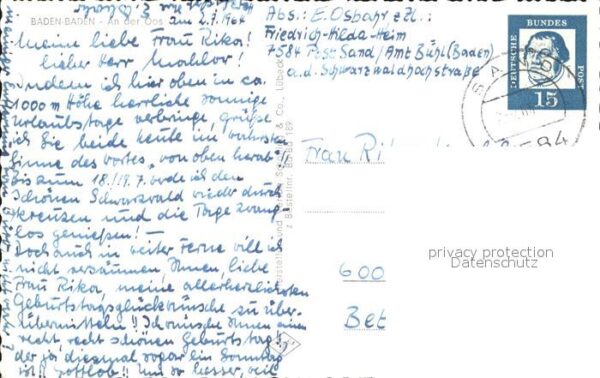 BADEN-BADEN - An der Oos
am 2.7.64
Meine liebe Frau Rika!
lieber Herr
Indem ich hier oben in ca.
1000 m Höhe herrliche sonnige
Urlaubstage verbringe, grüße
ich Sie beide heute im wahrsten
Sinne des Wortes "von oben herab"!
Bis zum 18./19.7. werde ich den
schönen Schwarzwald wieder durch
kreuzen und die Tage zwang
los genießen! -
Doch auch in weiter Ferne will ich
nicht versäumen, Ihnen, liebe
Frau Rika, meine allerherzlichsten
Geburtstagsglückwünsche zu über-
übermitteln!! Ich wünsche Ihnen einen
recht, recht schönen Geburtstag!
der ja diesmal sogar ein Sonntag
ist, Gottlob!! Um so besser, weil
Abs.: E. Osbahr z.Zt.:
Friedrich-Hilda-Heim
7584 Post Sand/Amt Bühl (Baden)
a.d. Schwarzwaldhochstraße
DEUTSCHE BUNDESPOST
15
Frau Ri
600
Bet
privacy protection
Datenschutz